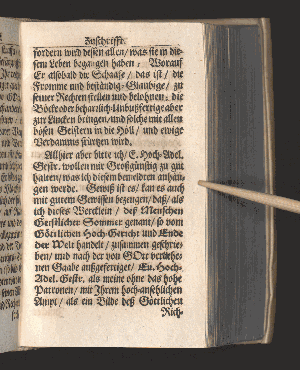 Zuschrifft.
fordern wird dessen allen / was sie in die-
sem Leben begangen haben; Worauf
Er alsobald die Schaafe / das ist / die
Fromme und beständig-Glaubige / zu
seiner Rechten stellen und belohnen; die
Böcke oder beharrlich-Unbußfertige aber
zur Lincken bringen / und solche mit allen
bösen Geistern in die Höll / und ewige
Verdamnus stürtzen wird.
Allhier aber bitte ich / E. Hoch-Adel.
Gestr. wollen mir Großgünstig zu gut
halten / was ich diesem
gen werde. Gewiß ist es / kan es auch
mit gutem Gewissen bezeugen / daß / als
ich dieses Wercklein / deß Menschen
Geistlicher Sommer genant / so vom
Göttlichen Hoch-Gericht und Ende
der Welt handelt / zusammen geschrie-
ben / und nach der von GOtt verliehe-
nen Gaabe außgefertiget / Eu. Hoch-
Adel. Gestr. als meine ohne das hohe
Patronen / mit Ihrem hoch-ansehlichen
Ampt / als ein Bilde deß Göttlichen
Rich-